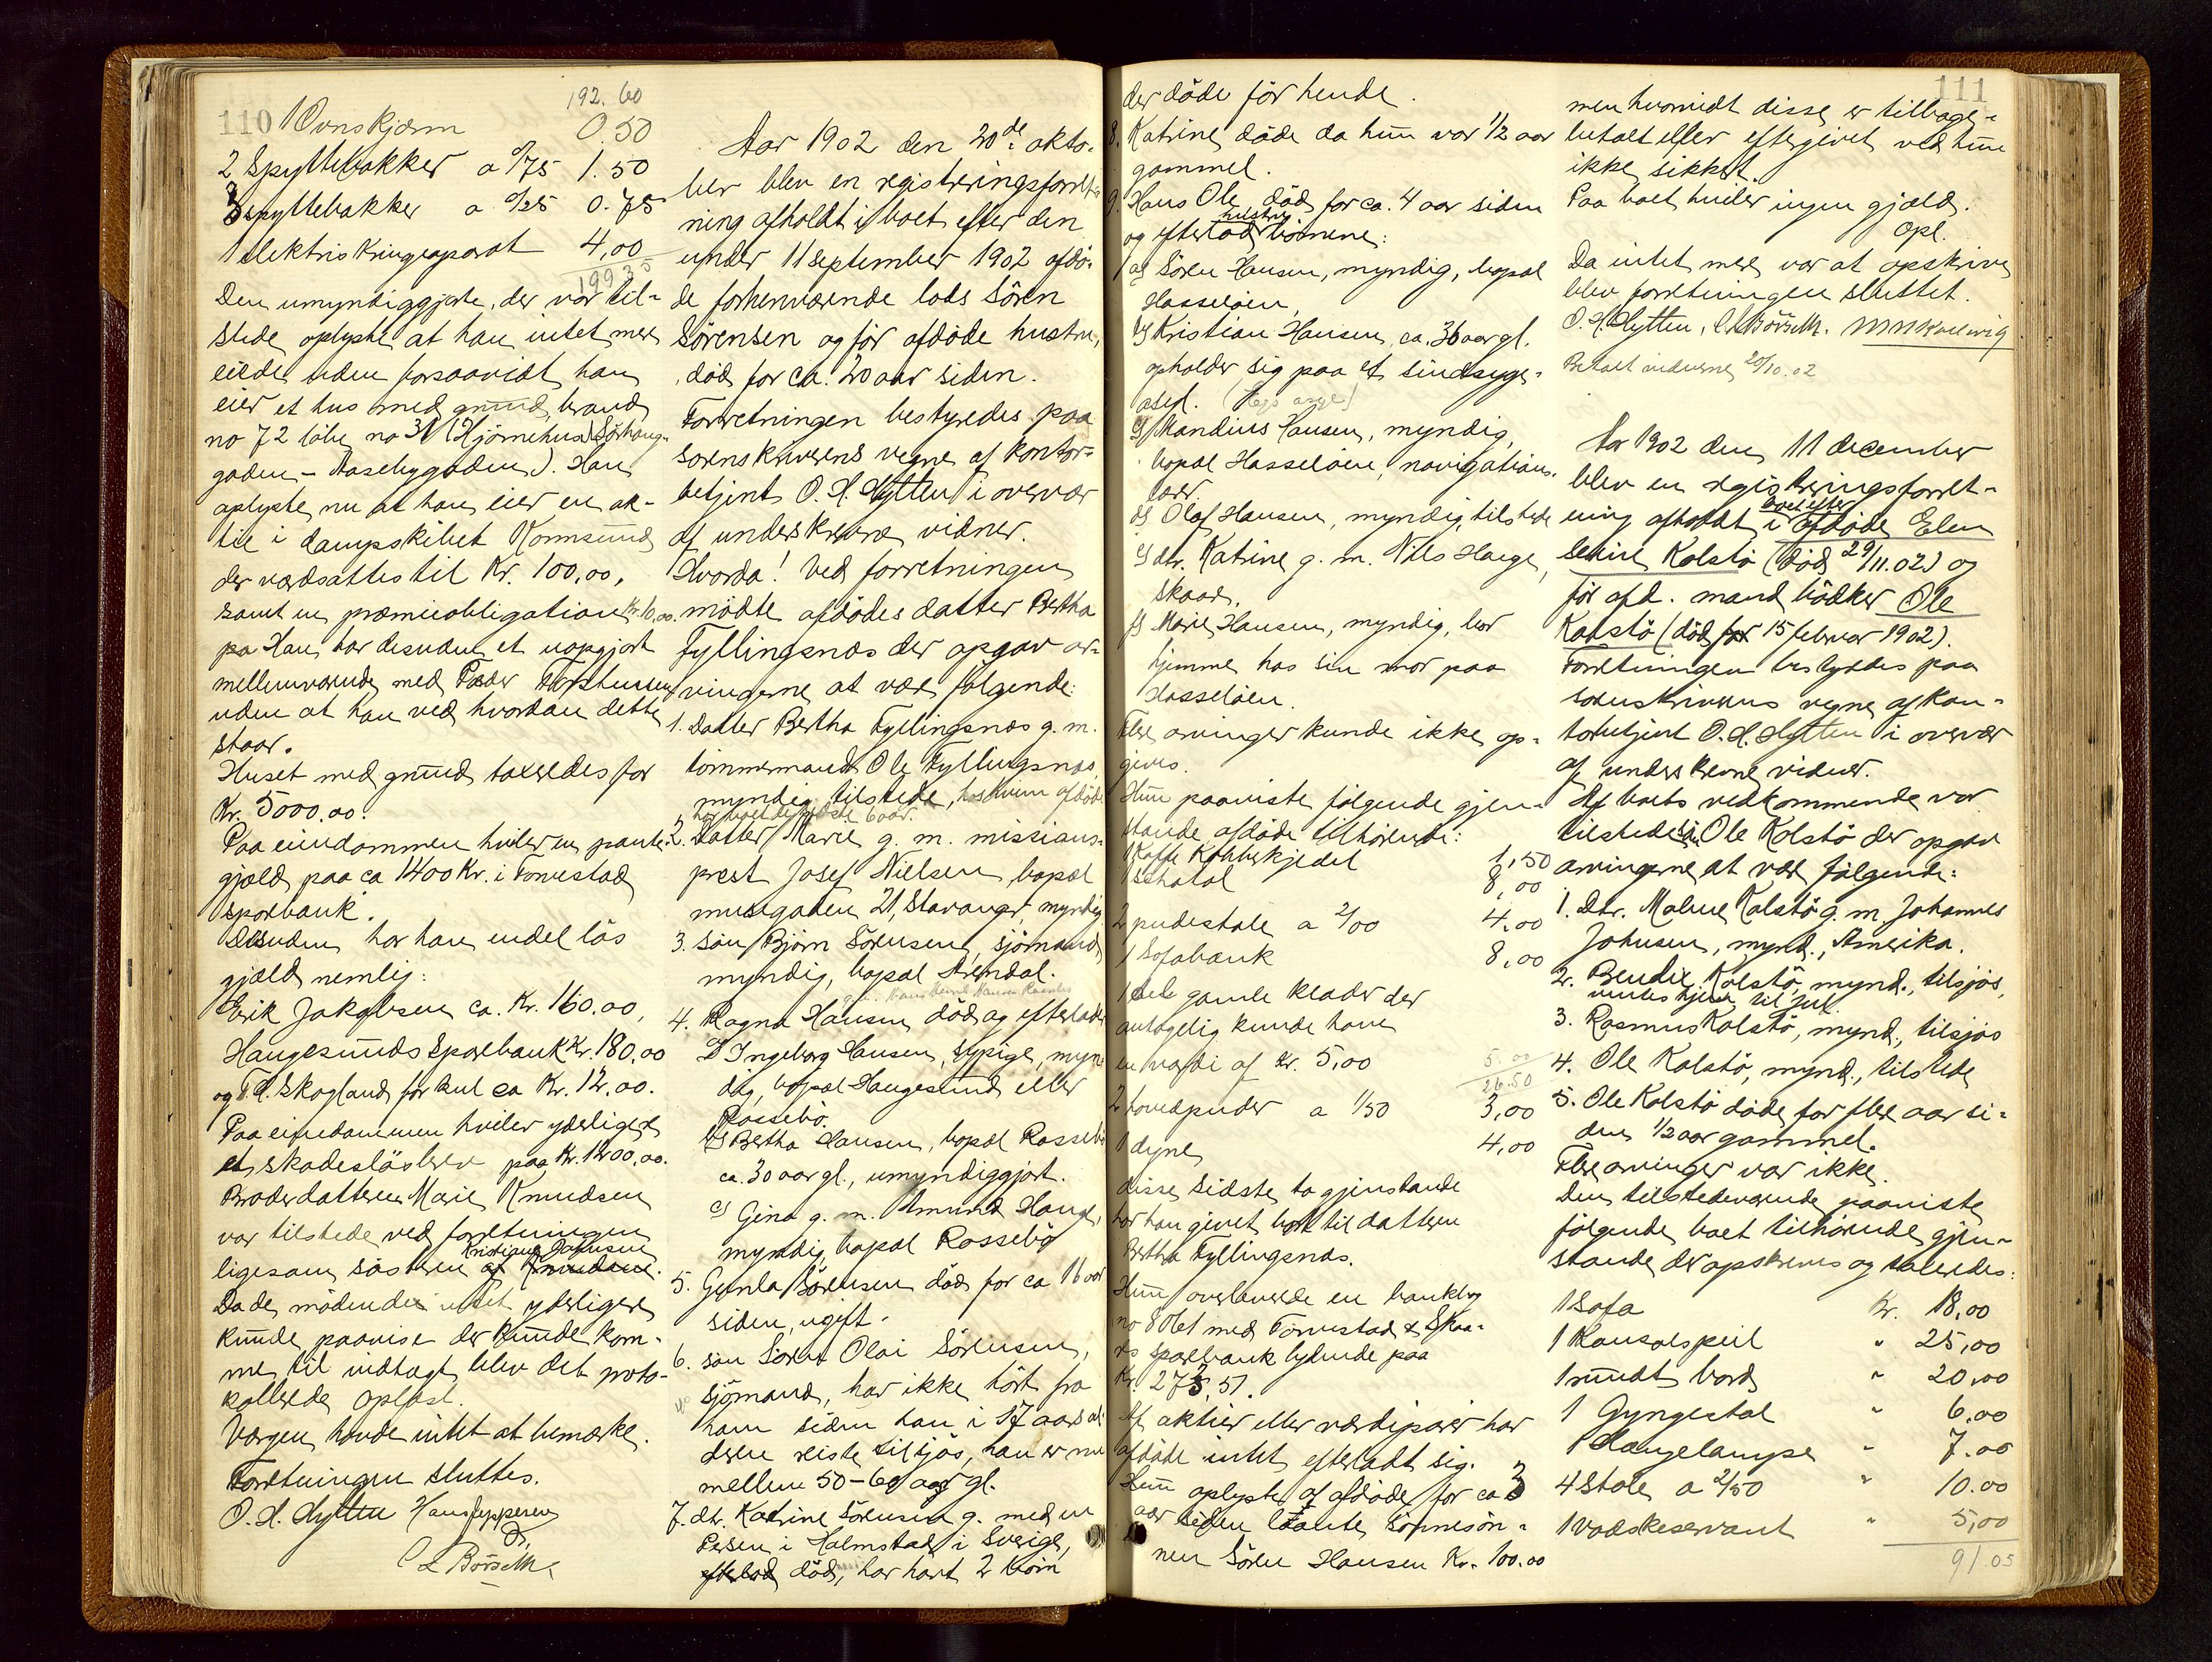 110
192.60
1 Ovnskjærm 0.50
2 Spyttebakker a 0/75 1.50
3 spyttebakker a 0/25 0.75
1 elektrisk ringeapparat 4,00
199.35
Den umyndiggjorte, der var til-
stede oplyste at han intet mere
eiede uden forsaavidt han
eier et hus med grund, brand
no 72 löbe no 31 (Hjörnehus Sörhaug-
gaden - Aasebygaden). Han
oplyste nu at han eier en ak-
tie i dampskibet Karmsund
der værdsattes til Kr. 100,00,
samt en præmieobligation Kr. 10,00.
Han har desuden et uopgjort
mellemværende med Peder
uden at han ved hvordan dette
staar.
Huset med grund taxeredes for
Kr. 5000.00.
Paa eiendommen hviler en pante-
gjæld paa ca 1400 Kr. i Torvestad
sparbank.
Desuden har han endel lös
gjæld nemlig:
Erik Jakobsen ca. Kr. 160.00,
Haugesunds Sparebank Kr. 180,00
og T. A. Skogland för kul ca Kr. 12.00.
Paa eiendommen hviler yderligere
et skadeslösbrev paa Kr. 1200,00.
Broderdatteren Marie Knudsen
var tilstede ved forretningen
Kristiane Johnsen
ligesom sösteren af Knudsen.
Da de mödende intet yderligere
kunde paavise der kunde kom-
me til indtægt blev det proto-
kollerede oplæst.
Værgen havde intet at bemærke.
Forretningen sluttes.
O. H. Hytten Hans Jeppesen
L Börseth.
Aar 1902 den 20de okto-
ber blev en registreringsforret-
ning afholdt i boet efter den
under 11 september 1902 afdö-
de forhenværende lods Sören
Sörensen og för afdöde hustru,
död for ca. 20 aar siden.
Forretningen bestyredes paa
sorenskriverens vegne af kontor-
betjent O. H. Hytten i overvær
af underskrevne vidner.
Hvorda! Ved forretningen
mödte afdödes datter Bertha
Fyllingsnæs der opgav ar-
vingerne at være fölgende:
1. Datter Bertha Fyllingsnæs g. m.
tömmermand Ole Fyllingsnæs,
myndig, tilstede, hos hvem afdöde
har boet de sidste 6 aar.
2. Datter Marie g. m. missions-
prest Josef Nielsen, bopæl
musegaden 21, Stavanger, myndig
3. Sön Björn Sörensen, sjömand,
myndig, bopæl Arendal.
4. Ragna Hansen död og efterlader
a) Ingeborg Hansen, sypige, myn-
dig, bopæl Haugesund eller
Rossebö.
b) Bertha Hansen, bopæl Rossebö
ca. 30 aar gl., umyndiggjort.
c) Gina g. m. Amund Hauge,
myndig, bopæl Rossebö
5. Gunla Sörensen död for ca 16 aar
siden, ugift.
6. sön Sören Olai Sörensen,
sjömand, har ikke hört fra
ham siden han i 17 aars al-
deren reiste tilsjös, han er nu
mellem 50-60 aar gl.
7. dtr. Katrine Sörensen g. med en
i Halmstad i Sverige,
efterlod död, har havt 2 börn
111
der döde för hende.
8. Katrine döde da hun var 1/2 aar
gammel.
9. Hans Ole död for ca. 4 aar siden
hustru
og efterlod börnene:
a) Sören Hansen, myndig, bopæl
Hasselöen,
b) Kristian Hansen, ca. 36 aar gl.
opholder sig paa et sindsyge-
asyl.
c) Mandius Hansen, myndig,
bopæl Hasselöen, navigations-
lærer.
d) Olaf Hansen, myndig, tilstede
e) dtr. Katrine g. m. Nils Hauge,
Skaar.
f) Marie Hansen, myndig, bor
hjemme hos sin mor paa
Hasselöen.
Flere arvinger kunde ikke op-
gives.
Hun paaviste fölgende gjen-
stande afdöde tilhörende:
1 Kaffe Kobberkjedel 1,50
1 schatol 8,00
2 pudestole a 2/00 4.00
1 Sofabænk 8,00
1 del gamle klæder der
antagelig kunde have
en værdi af Kr. 5,00
5.00
26.50
2 hovedpuder a 1/50 3,00
1 dyne 4,00
disse sidste to gjenstande
har han givet bort til datteren
Bertha Fyllingsnæs.
Hun overleverede en bankbog
no med Torvestad & Skaa-
res sparebank lydende paa
Kr. 273,51.
Af aktier eller værdipapirer har
afdöde intet efterladt sig.
Hun oplyste af afdöde for ca 3
aar siden laante sönnesön-
nen Sören Hansen Kr. 100.00
men hvorvidt disse er tilbage-
betalt eller eftergivet ved hun
ikke sikkert.
Paa boet hviler ingen gjæld.
Opl.
Da intet mere var at opskrive
blev forretningen sluttet.
O. H. Hytten, L Börseth.
Betalt vidnerne 20/10.02
Aar 1902 den 11 december
blev en registreringsforret-
boet efter
ning afholdt i afdöde Elen
Serine Kolstö (död 29/11.02) og
för afd. mand bödker Ole
Kolstö (död for 15 februar 1902).
Forretningen bestyredes paa
sorenskriverens vegne af kon-
torbetjent O. H. Hytten i overvær
af underskrevne vidner.
Af boets vedkommende var
tilstede sön Ole Kolstö der opgav
arvingerne at være fölgende:
1. Dtr. Malene Kolstö g. m. Johannes
Johnsen, mynd., Amerika.
2. Bendix Kolstö, mynd., tilsjös,
ventes hjem til jul.
3. Rasmus Kolstö, mynd., tilsjös
4. Ole Kolstö, mynd., tilstede
5. Ole Kolstö döde for flere aar si-
den 1/2 aar gammel.
Flere arvinger var ikke.
Den tilstedeværende paaviste
fölgende boet tilhörende gjen-
stande der opskreves og taxeredes:
1 Sofa Kr. 18,00
1 Konsolspeil " 25,00
1 rundt bord " 20,00
1 Gyngestol " 6,00
1 Hængelampe " 7.00
4 Stole a 2/50 " 10.00
1 vadskeservant " 5,00
91.05